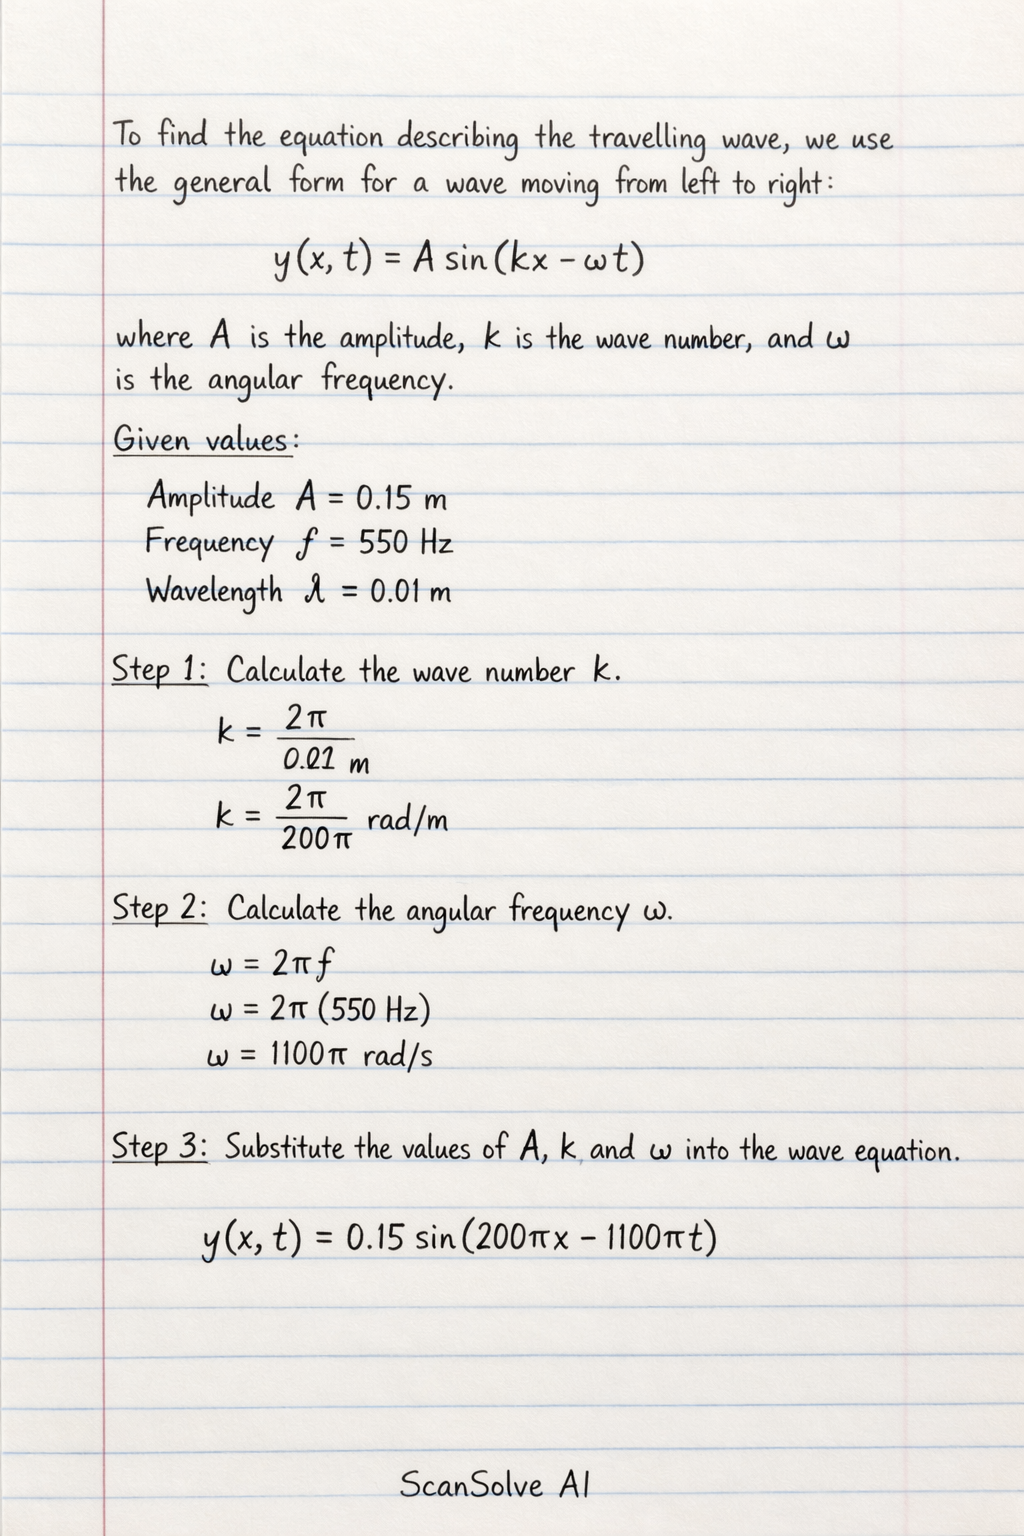 To find the equation describing the travelling wave, we use
the general form for a wave moving from left to right:
y(x, t) = A sin(kx − ωt)
where A is the amplitude, k is the wave number, and ω
is the angular frequency.
Given values:
Amplitude A = 0.15 m
Frequency f = 550 Hz
Wavelength λ = 0.01 m
Step 1: Calculate the wave number k.
k = 2π / 0.01 m
k = 2π / 200π rad/m
Step 2: Calculate the angular frequency ω.
ω = 2πf
ω = 2π (550 Hz)
ω = 1100π rad/s
Step 3: Substitute the values of A, k, and ω into the wave equation.
y(x, t) = 0.15 sin(200πx − 1100πt)
ScanSolve AI